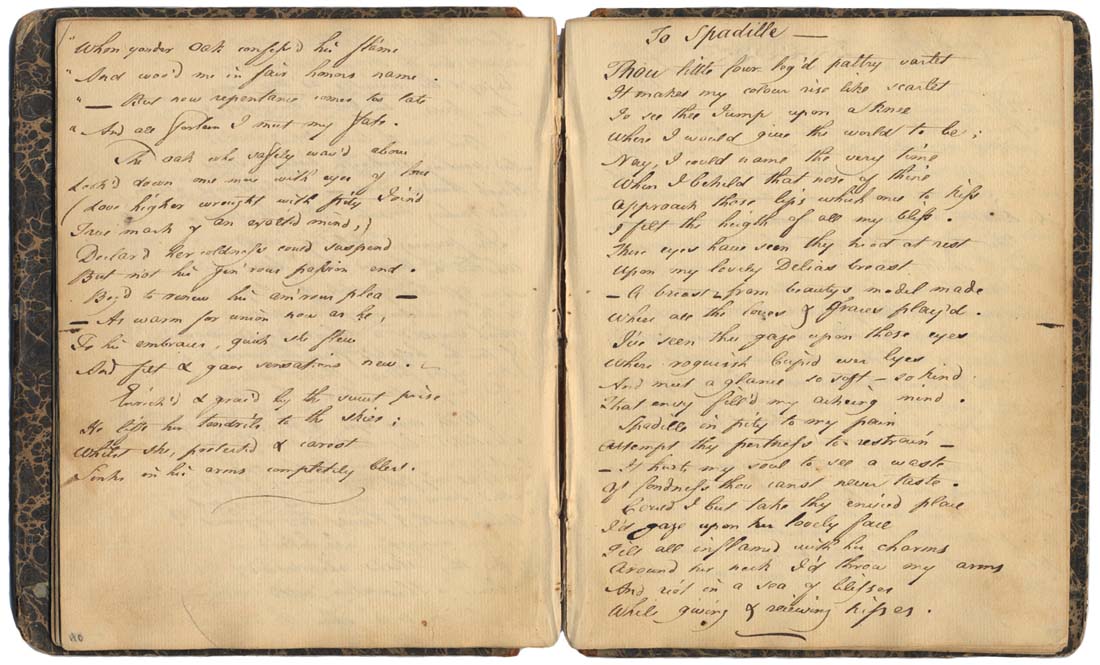 "When yonder Oak confess'd his flame
"And woo'd me in fair honors name.
"— But now repentance comes too late
"And all forlorn I meet my fate.
The oak who safely wav'd above
Look'd down once more with eyes of love
(Love higher wrought with pity join'd
True mark of an exalted mind,)
Declar'd her coldness could suspend
But not his gen'rous passion end.
Beg'd to renew his am'rous plea —
— As warm for union now as he,
To his embraces, quick she flew
And felt & gave sensations new.
Enrich'd & grac'd by the sweet prize
He lifts her tendrils to the skies;
Whilst she, protected & carest
Sinks in his arms completely blest.
110
To Spadille —
Thou little four-leg'd paltry varlet
It makes my colour rise like scarlet
To see thee Jump upon a knee
Where I would give the world to be;
Nay, I could name the very time
When I beheld that nose of thine
Approach those lips which once to kiss
I felt the height of all my bliss.
These eyes have seen thy head at rest
Upon my lovely Delias breast
— A breast from beautys model made
Where all the Loves & Graces play'd.
I've seen thee gaze upon those eyes
Where roguish Cupid ever lyes
And meet a glance so soft — so kind
That envy fill'd my acheing mind.
Spadille in pity to my pain
Attempt thy pertness to restrain —
— It hurts my soul to see a waste
Of fondness thou canst never taste.
Could I but take thy envied place
I'd gaze upon her lovely face
Till all inflamed with her charms
Around her neck I'd throw my arms
And riot in a sea of blisses
While giving & reciving kisses.